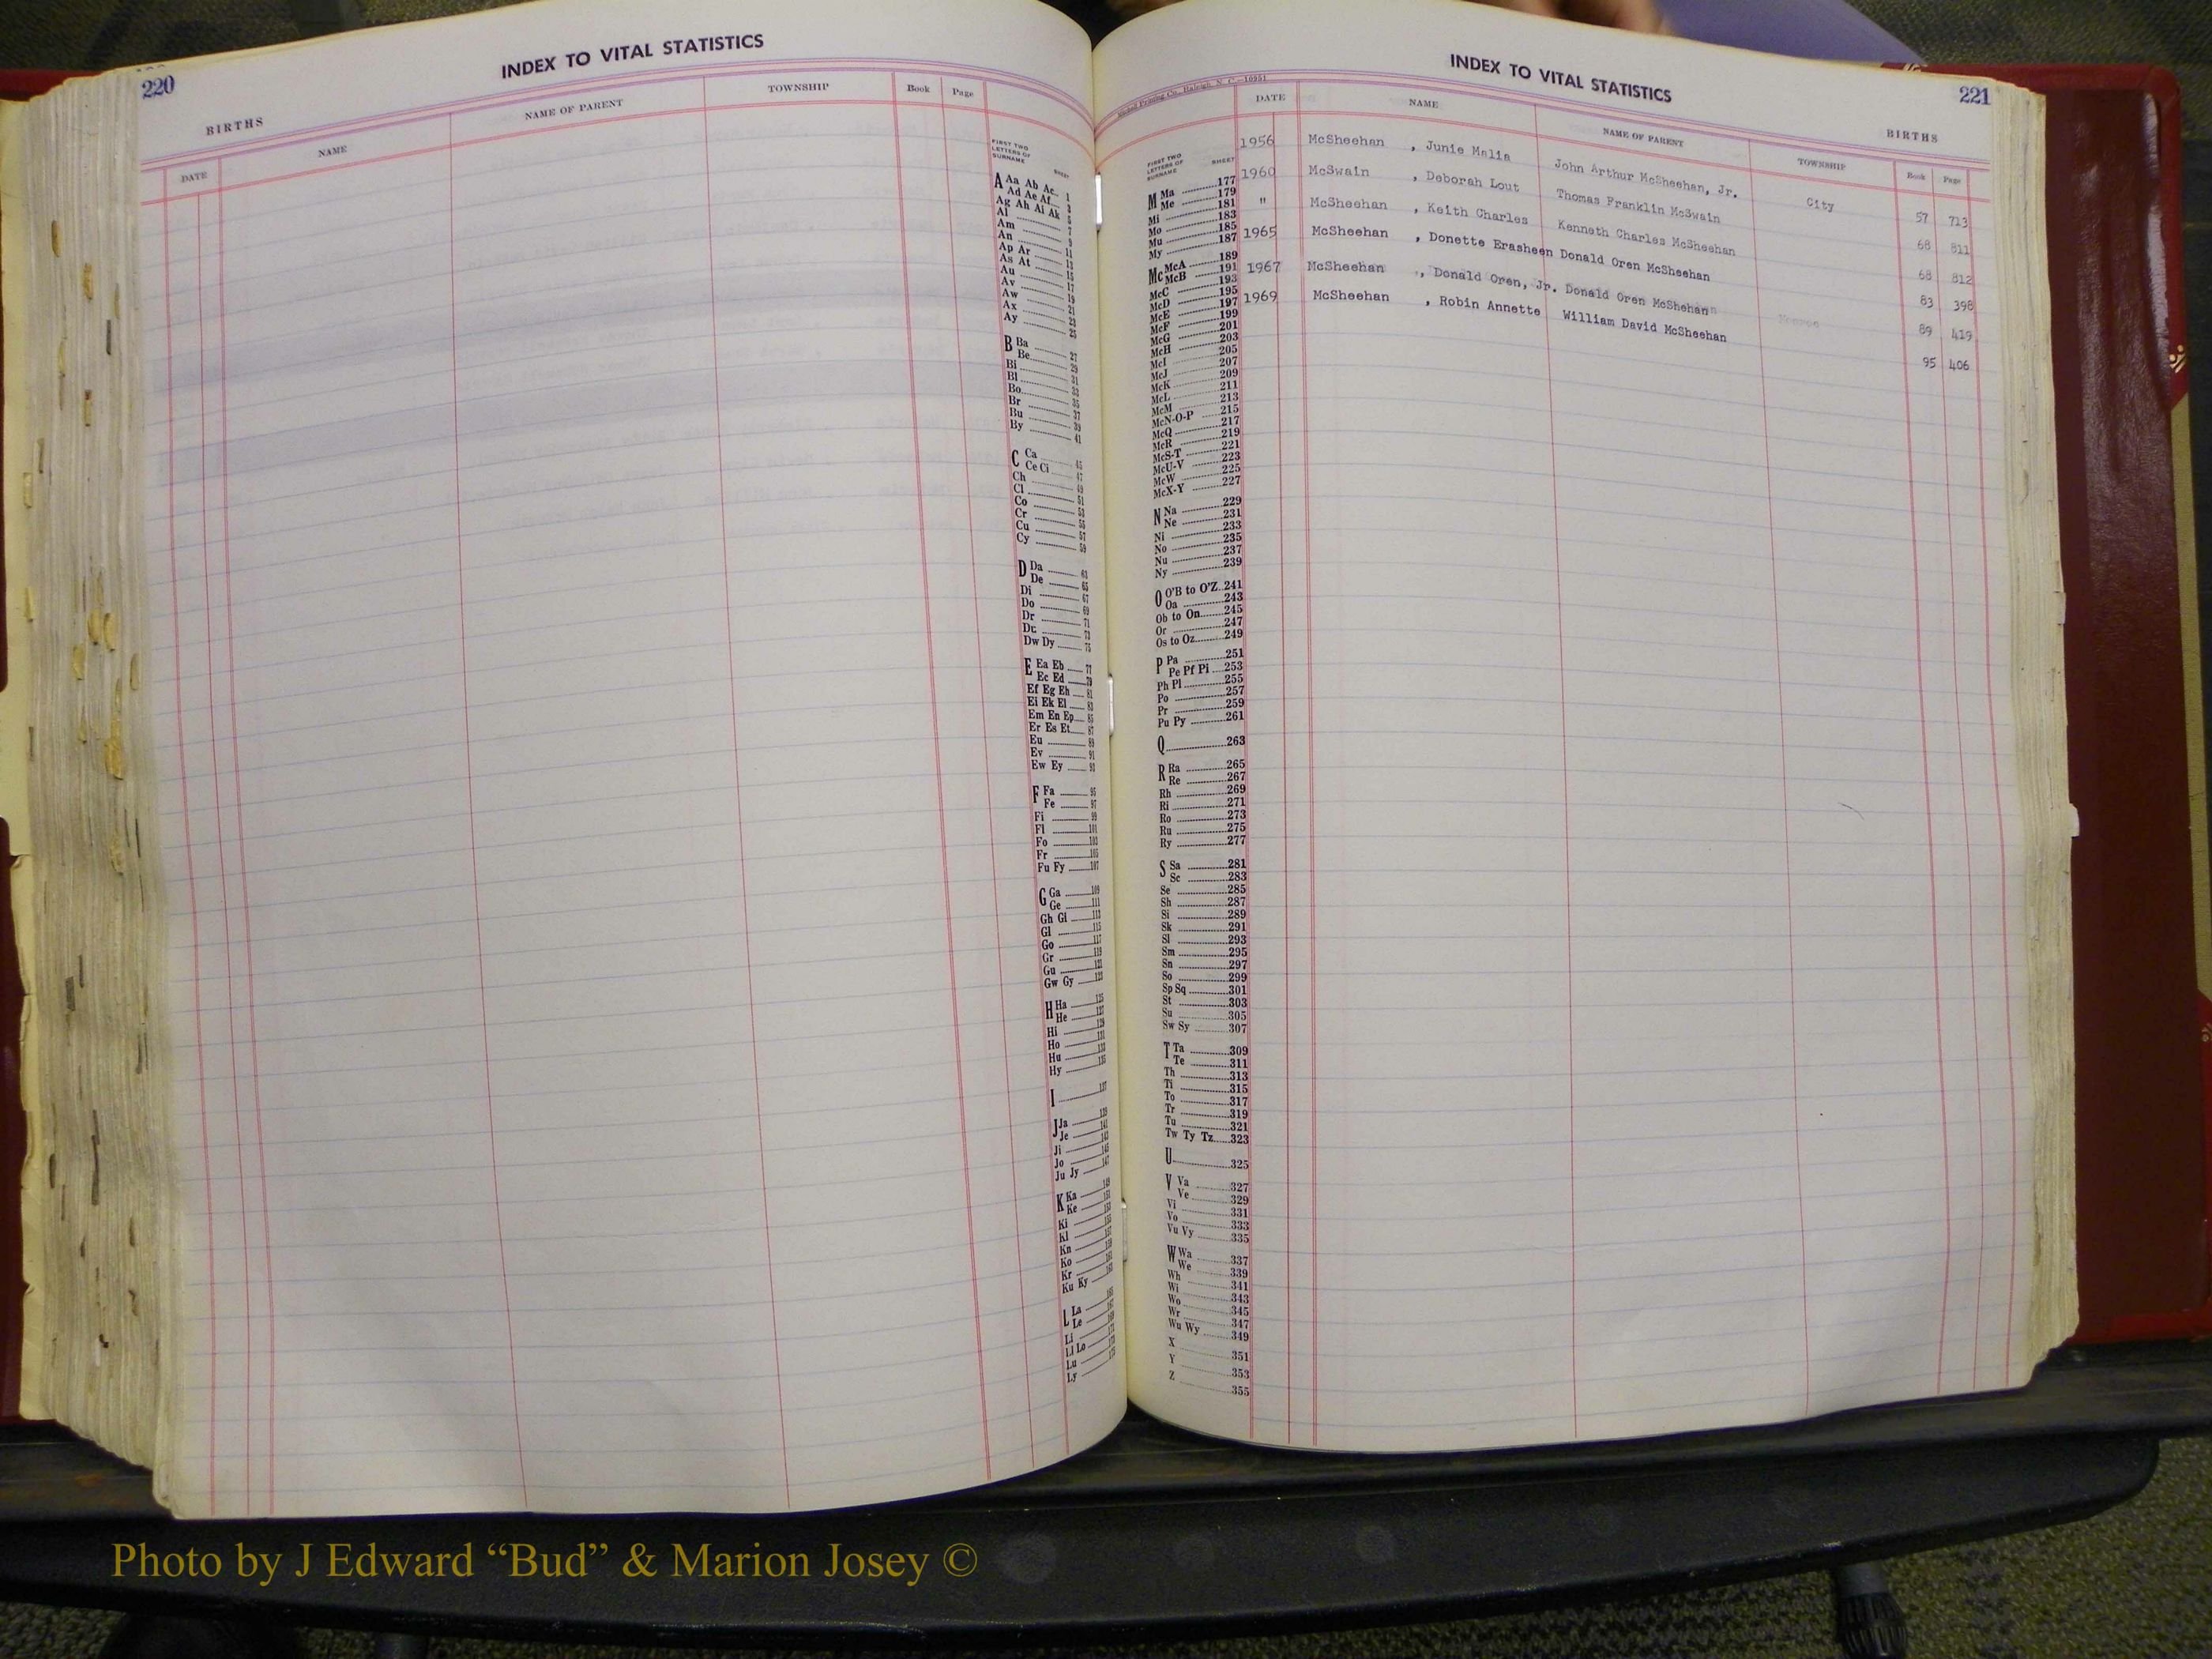 220
INDEX TO VITAL STATISTICS
BIRTHS
DATE NAME NAME OF PARENT TOWNSHIP Book Page
FIRST TWO
LETTERS OF
SURNAME SHEET
A Aa Ab Ac 1
Ad Ae Af 3
Ag Ah Ai Ak 5
Al 7
Am 9
An 11
Ap Ar 13
As At 15
Au 17
Av 19
Aw 21
Ax 23
Ay 25
B Ba 27
Be 29
Bi 31
Bl 33
Bo 35
Br 37
Bu 39
By 41
C Ca 45
Ce Ci 47
Ch 49
Cl 51
Co 53
Cr 55
Cu 57
Cy 59
D Da 63
De 65
Di 67
Do 69
Dr 71
Du 73
Dw Dy 75
E Ea Eb 77
Ec Ed 79
Ef Eg Eh 81
Ei Ek El 83
Em En Ep 85
Er Es Et 87
Eu 89
Ev 91
Ew Ey 93
F Fa 95
Fe 97
Fi 99
Fl 101
Fo 103
Fr 105
Fu Fy 107
G Ga 109
Ge 111
Gh Gi 113
Gl 115
Go 117
Gr 119
Gu 121
Gw Gy 123
H Ha 125
He 127
Hi 129
Ho 131
Hu 133
Hy 135
I 137
J Ja 139
Je 141
Ji 143
Jo 145
Ju Jy 147
K Ka
Ke
Ki
Kl
Kn
Ko
Kr
Ku Ky
L La
Le
Li
Ll Lo
Lu
Ly
INDEX TO VITAL STATISTICS
221
BIRTHS
Printing Co., Raleigh, N. C.—10951
DATE NAME NAME OF PARENT TOWNSHIP Book Page
1956 McSheehan , Junie Malia John Arthur McSheehan, Jr. City 57 713
1960 McSwain , Deborah Lout Thomas Franklin McSwain 68 811
" McSheehan , Keith Charles Kenneth Charles McSheehan 68 812
1965 McSheehan , Donette Erasheen Donald Oren McSheehan 83 398
1967 McSheehan , Donald Oren, Jr. Donald Oren McShehan Monroe 89 419
1969 McSheehan , Robin Annette William David McSheehan 95 406
FIRST TWO
LETTERS OF
SURNAME SHEET
M Ma 177
Me 179
Mi 181
Mo 183
Mu 185
My 187
Mc McA 189
McB 191
McC 193
McD 195
McE 197
McF 199
McG 201
McH 203
McI 205
McJ 207
McK 209
McL 211
McM 213
McN-O-P 215
McQ 217
McR 219
McS-T 221
McU-V 223
McW 225
McX-Y 227
N Na 229
Ne 231
Ni 233
No 235
Nu 237
Ny 239
O O'B to O'Z 241
Oa 243
Ob to On 245
Or 247
Os to Oz 249
P Pa 251
Pe Pf Pi 253
Ph Pl 255
Po 257
Pr 259
Pu Py 261
Q 263
R Ra 265
Re 267
Rh 269
Ri 271
Ro 273
Ru 275
Ry 277
S Sa 281
Sc 283
Se 285
Sh 287
Si 289
Sk 291
Sl 293
Sm 295
Sn 297
So 299
Sp Sq 301
St 303
Su 305
Sw Sy 307
T Ta 309
Te 311
Th 313
Ti 315
To 317
Tr 319
Tu 321
Tw Ty Tz 323
U 325
V Va 327
Ve 329
Vi 331
Vo 333
Vu Vy 335
W Wa 337
We 339
Wh 341
Wi 343
Wo 345
Wr 347
Wu Wy 349
X 351
Y 353
Z 355
Photo by J Edward “Bud” & Marion Josey ©